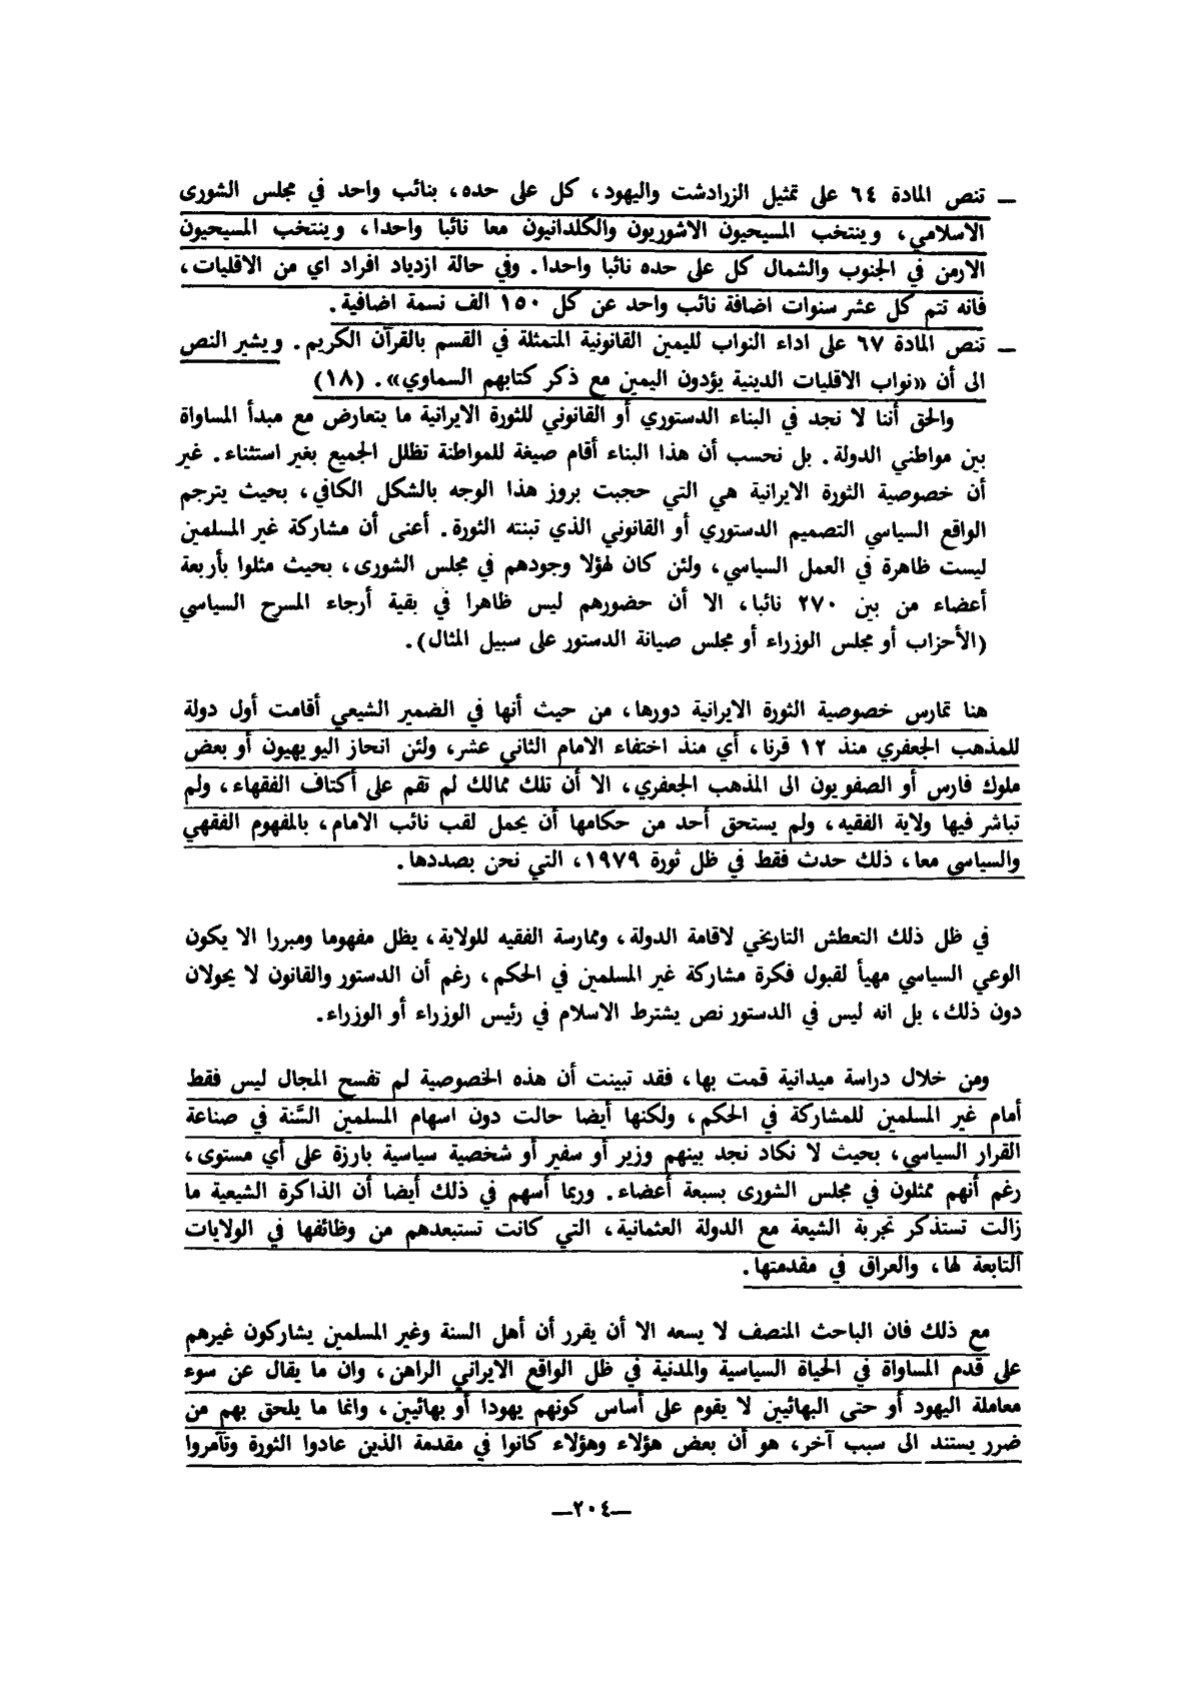 — تنص المادة ٦٤ على تمثيل الزرادشت واليهود، كل على حده، بنائب واحد في مجلس الشورى
الاسلامي، وينتخب المسيحيون الاشوريون والكلدانيون معا نائبا واحدا، وينتخب المسيحيون
الارمن في الجنوب والشمال كل على حده نائبا واحدا. وفي حالة ازدياد افراد اي من الاقليات،
فانه تتم كل عشر سنوات اضافة نائب واحد عن كل ١٥٠ الف نسمة اضافية.
— تنص المادة ٦٧ على اداء النواب لليمين القانونية المتمثلة في القسم بالقرآن الكريم. ويشير النص
الى أن «نواب الاقليات الدينية يؤدون اليمين مع ذكر كتابهم السماوي». (١٨)
والحق أننا لا نجد في البناء الدستوري أو القانوني للثورة الايرانية ما يتعارض مع مبدأ المساواة
بين مواطني الدولة. بل نحسب أن هذا البناء أقام صيغة للمواطنة تظلل الجميع بغير استثناء. غير
أن خصوصية الثورة الايرانية هي التي حجبت بروز هذا الوجه بالشكل الكافي، بحيث يترجم
الواقع السياسي التصميم الدستوري أو القانوني الذي تبنته الثورة. أعنى أن مشاركة غير المسلمين
ليست ظاهرة في العمل السياسي، ولئن كان لهؤلا وجودهم في مجلس الشورى، بحيث مثلوا بأربعة
أعضاء من بين ٢٧٠ نائبا، الا أن حضورهم ليس ظاهرا في بقية أرجاء المسرح السياسي
(الأحزاب أو مجلس الوزراء أو مجلس صيانة الدستور على سبيل المثال).
هنا تمارس خصوصية الثورة الايرانية دورها، من حيث أنها في الضمير الشيعي أقامت أول دولة
للمذهب الجعفري منذ ١٢ قرنا، أي منذ اختفاء الامام الثاني عشر، ولئن انحاز البويهيون أو بعض
ملوك فارس أو الصفويون الى المذهب الجعفري، الا أن تلك ممالك لم تقم على أكتاف الفقهاء، ولم
تباشر فيها ولاية الفقيه، ولم يستحق أحد من حكامها أن يحمل لقب نائب الامام، بالمفهوم الفقهي
والسياسي معا، ذلك حدث فقط في ظل ثورة ١٩٧٩، التي نحن بصددها.
في ظل ذلك التعطش التاريخي لاقامة الدولة، وممارسة الفقيه للولاية، يظل مفهوما ومبررا الا يكون
الوعي السياسي مهيأ لقبول فكرة مشاركة غير المسلمين في الحكم، رغم أن الدستور والقانون لا يحولان
دون ذلك، بل انه ليس في الدستور نص يشترط الاسلام في رئيس الوزراء أو الوزراء.
ومن خلال دراسة ميدانية قمت بها، فقد تبينت أن هذه الخصوصية لم تفسح المجال ليس فقط
أمام غير المسلمين للمشاركة في الحكم، ولكنها أيضا حالت دون اسهام المسلمين السَّنة في صناعة
القرار السياسي، بحيث لا نكاد نجد بينهم وزير أو سفير أو شخصية سياسية بارزة على أي مستوى،
رغم أنهم ممثلون في مجلس الشورى بسبعة أعضاء. وربما أسهم في ذلك أيضا أن الذاكرة الشيعية ما
زالت تستذكر تجربة الشيعة مع الدولة العثمانية، التي كانت تستبعدهم من وظائفها في الولايات
التابعة لها، والعراق في مقدمتها.
مع ذلك فان الباحث المنصف لا يسعه الا أن يقرر أن أهل السنة وغير المسلمين يشاركون غيرهم
على قدم المساواة في الحياة السياسية والمدنية في ظل الواقع الايراني الراهن، وان ما يقال عن سوء
معاملة اليهود أو حتى البهائيين لا يقوم على أساس كونهم يهودا أو بهائيين، وانما ما يلحق بهم من
ضرر يستند الى سبب آخر، هو أن بعض هؤلاء وهؤلاء كانوا في مقدمة الذين عادوا الثورة وتآمروا
—٢٠٤—